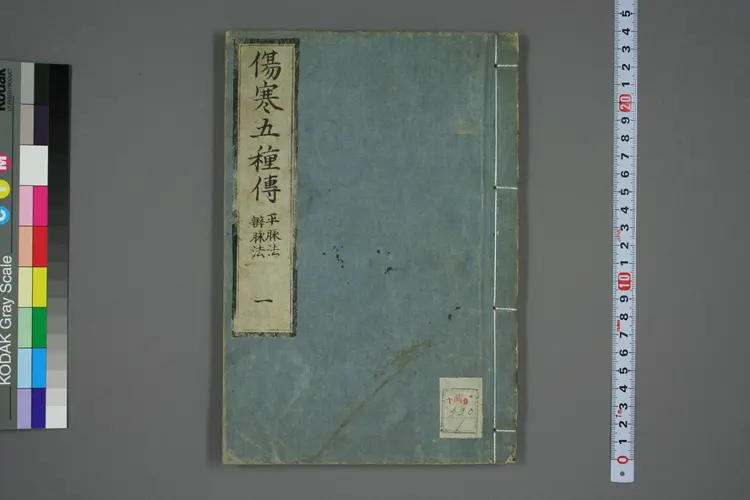 傷寒五種傳
平脉法
辨脉法
一
Kodak
C Y M
KODAK Gray Scale
0 1 2 3 4 5 6 7 8 9 10 1 2 3 4 5 6 7 8 9 20 1 2 3 4 5